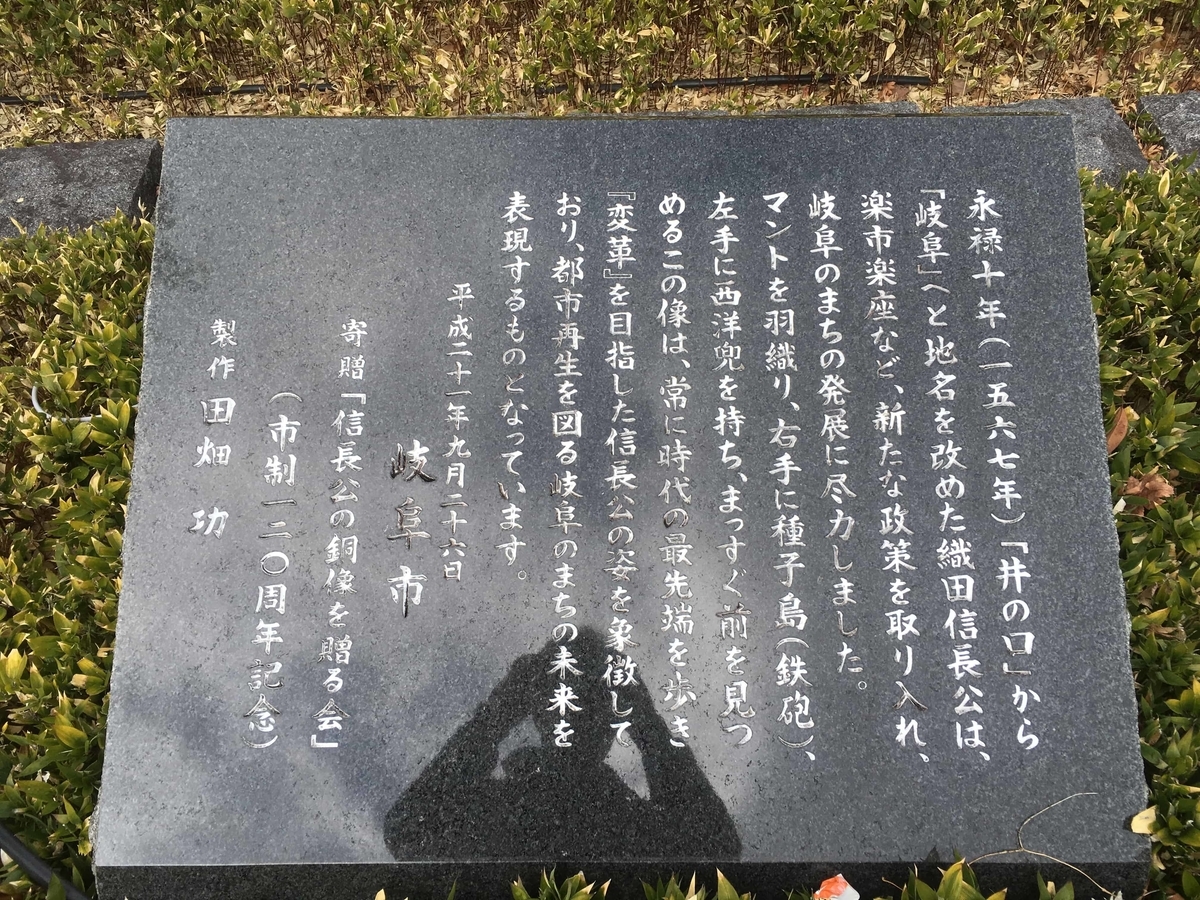 永禄十年（一五六七年）「井の口」から
「岐阜」へと地名を改めた織田信長公は、
楽市楽座など、新たな政策を取り入れ、
岐阜のまちの発展に尽力しました。
マントを羽織り、右手に種子島（鉄砲）、
左手に西洋兜を持ち、まっすぐ前を見つ
めるこの像は、常に時代の最先端を歩き
『変革』を目指した信長公の姿を象徴して
おり、都市再生を図る岐阜のまちの未来を
表現するものとなっています。
平成二十一年九月二十六日
岐阜市
寄贈「信長公の銅像を贈る会」
（市制一二〇周年記念）
製作 田畑功